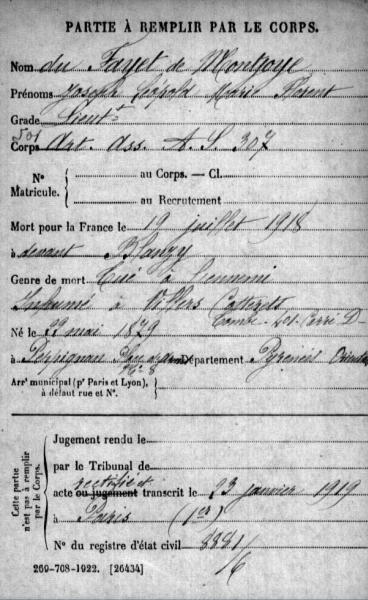 PARTIE À REMPLIR PAR LE CORPS.
Nom du Fayet de Montjoye
Prénoms Joseph Léopold Marie Florent
Grade Lieutt
501
Corps Art. ass. A. S. 307
No Matricule. { au Corps. — Cl.
au Recrutement
Mort pour la France le 19 juillet 1918
à devant Blanzy
Genre de mort Tué à l'ennemi
Inhumé à Villers Cotterets
Tombe
Né le 29 mai 1879
à Perpignan Département Pyrénées Orientales
Arrt municipal (pr Paris et Lyon), à défaut rue et No.
Cette partie n'est pas à remplir par le Corps.
Jugement rendu le
par le Tribunal de
rectifié et
acte ou jugement transcrit le 23 janvier 1919
à Paris (1er)
No du registre d'état civil 8881/6
269-708-1922. [26434]